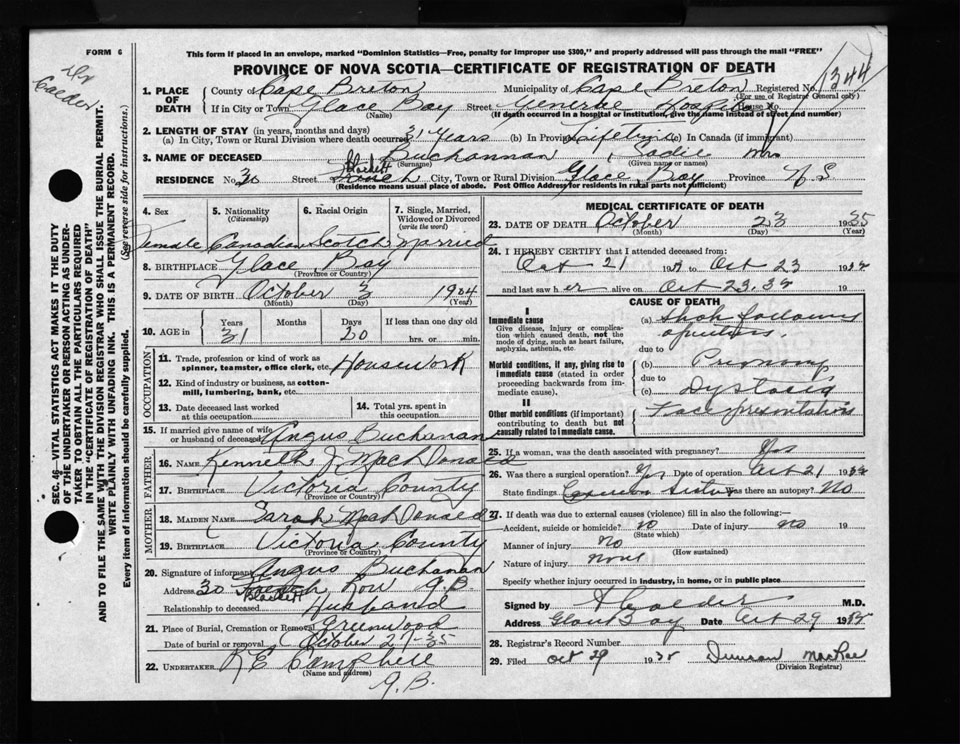 FORM 6
This form if placed in an envelope, marked "Dominion Statistics—Free, penalty for improper use $300," and properly addressed will pass through the mail "FREE"
PROVINCE OF NOVA SCOTIA—CERTIFICATE OF REGISTRATION OF DEATH
Dr Calder
SEC. 46—VITAL STATISTICS ACT MAKES IT THE DUTY
OF THE UNDERTAKER OR PERSON ACTING AS UNDER-
TAKER TO OBTAIN ALL THE PARTICULARS REQUIRED
IN THE "CERTIFICATE OF REGISTRATION OF DEATH"
AND TO FILE THE SAME WITH THE DIVISION REGISTRAR WHO SHALL ISSUE THE BURIAL PERMIT.
WRITE PLAINLY WITH UNFADING INK. THIS IS A PERMANENT RECORD.
Every item of information should be carefully supplied. (See reverse side for instructions.)
1. PLACE OF DEATH County of Cape Breton Municipality of Cape Breton Registered No. 1344
(For use of Registrar General only)
If in City or Town Glace Bay Street General Hospital House No.
(Name) (If death occurred in a hospital or institution, give the name instead of street and number)
2. LENGTH OF STAY (in years, months and days)
(a) In City, Town or Rural Division where death occurred 31 Years (b) In Province Lifetime (c) In Canada (if immigrant)
3. NAME OF DECEASED Buchannan, Sadie Mrs
(Surname) (Given name or names)
RESIDENCE No. 30 Street Blackett City, Town or Rural Division Glace Bay Province N.S
(Residence means usual place of abode. Post Office Address for residents in rural parts not sufficient)
4. Sex Female
5. Nationality (Citizenship) Canadian
6. Racial Origin Scotch
7. Single, Married, Widowed or Divorced (write the word) Married
8. BIRTHPLACE Glace Bay
(Province or Country)
9. DATE OF BIRTH October 3 1904
(Month) (Day) (Year)
10. AGE in Years 31 Months Days 20 If less than one day old hrs. or min.
OCCUPATION
11. Trade, profession or kind of work as spinner, teamster, office clerk, etc. Housework
12. Kind of industry or business, as cotton-mill, lumbering, bank, etc.
13. Date deceased last worked at this occupation
14. Total yrs. spent in this occupation
15. If married give name of wife or husband of deceased Angus Buchanan
FATHER
16. NAME Kenneth J MacDonald
17. BIRTHPLACE Victoria County
(Province or Country)
MOTHER
18. MAIDEN NAME Sarah MacDonald
19. BIRTHPLACE Victoria County
(Province or Country)
20. Signature of informant Angus Buchanan
Address 30 Blackett Row G.B.
Relationship to deceased Husband
21. Place of Burial, Cremation or Removal Greenwood
Date of burial or removal October 27-35
22. UNDERTAKER K E Camphell
(Name and address)
G.B.
MEDICAL CERTIFICATE OF DEATH
23. DATE OF DEATH October 23 1935
(Month) (Day) (Year)
24. I HEREBY CERTIFY that I attended deceased from:
Oct 21 19 to Oct 23 19
and last saw her alive on Oct 23. 19
CAUSE OF DEATH
I
Immediate cause
Give disease, injury or complication which caused death, not the mode of dying, such as heart failure, asphyxia, asthenia, etc.
(a) Shok following
due to
Morbid conditions, if any, giving rise to immediate cause (stated in order proceeding backwards from immediate cause).
(b)
due to
(c) Dystocia
II
Other morbid conditions (if important) contributing to death but not causally related to immediate cause.
Face presentation
25. If a woman, was the death associated with pregnancy? Yes
26. Was there a surgical operation? Yes Date of operation Oct 21 19
State findings Was there an autopsy? No
27. If death was due to external causes (violence) fill in also the following:—
Accident, suicide or homicide? no Date of injury no 19
(State which)
Manner of injury No
(How sustained)
Nature of injury none
Specify whether injury occurred in industry, in home, or in public place
Signed by A Calder M.D.
Address Glace Bay Date Oct 29 19
28. Registrar's Record Number
29. Filed Oct 29 1935 Duncan MacRae
(Division Registrar)